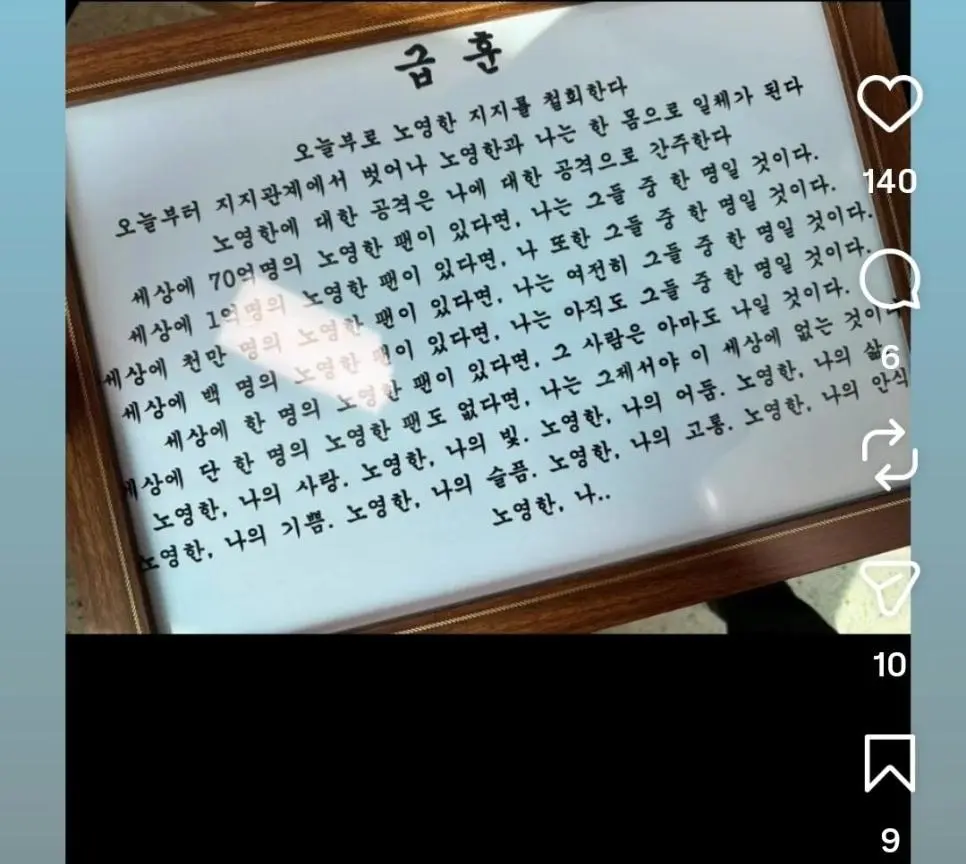 급 훈
오늘부로 노영한 지지를 철회한다
오늘부터 지지관계에서 벗어나 노영한과 나는 한 몸으로 일체가 된다
노영한에 대한 공격은 나에 대한 공격으로 간주한다
세상에 70억명의 노영한 팬이 있다면, 나는 그들 중 한 명일 것이다.
세상에 1억명의 노영한 팬이 있다면, 나 또한 그들 중 한 명일 것이다.
세상에 천만 명의 노영한 팬이 있다면, 나는 여전히 그들 중 한 명일 것이다.
세상에 백 명의 노영한 팬이 있다면, 나는 아직도 그들 중 한 명일 것이다.
세상에 한 명의 노영한 팬이 있다면, 그 사람은 아마도 나일 것이다.
세상에 단 한 명의 노영한 팬도 없다면, 나는 그제서야 이 세상에 없는 것이
노영한, 나의 사랑. 노영한, 나의 빛. 노영한, 나의 어둠. 노영한, 나의 삶
노영한, 나의 기쁨. 노영한, 나의 슬픔. 노영한, 나의 고통. 노영한, 나의 안식
노영한, 나..
140
6
10
9